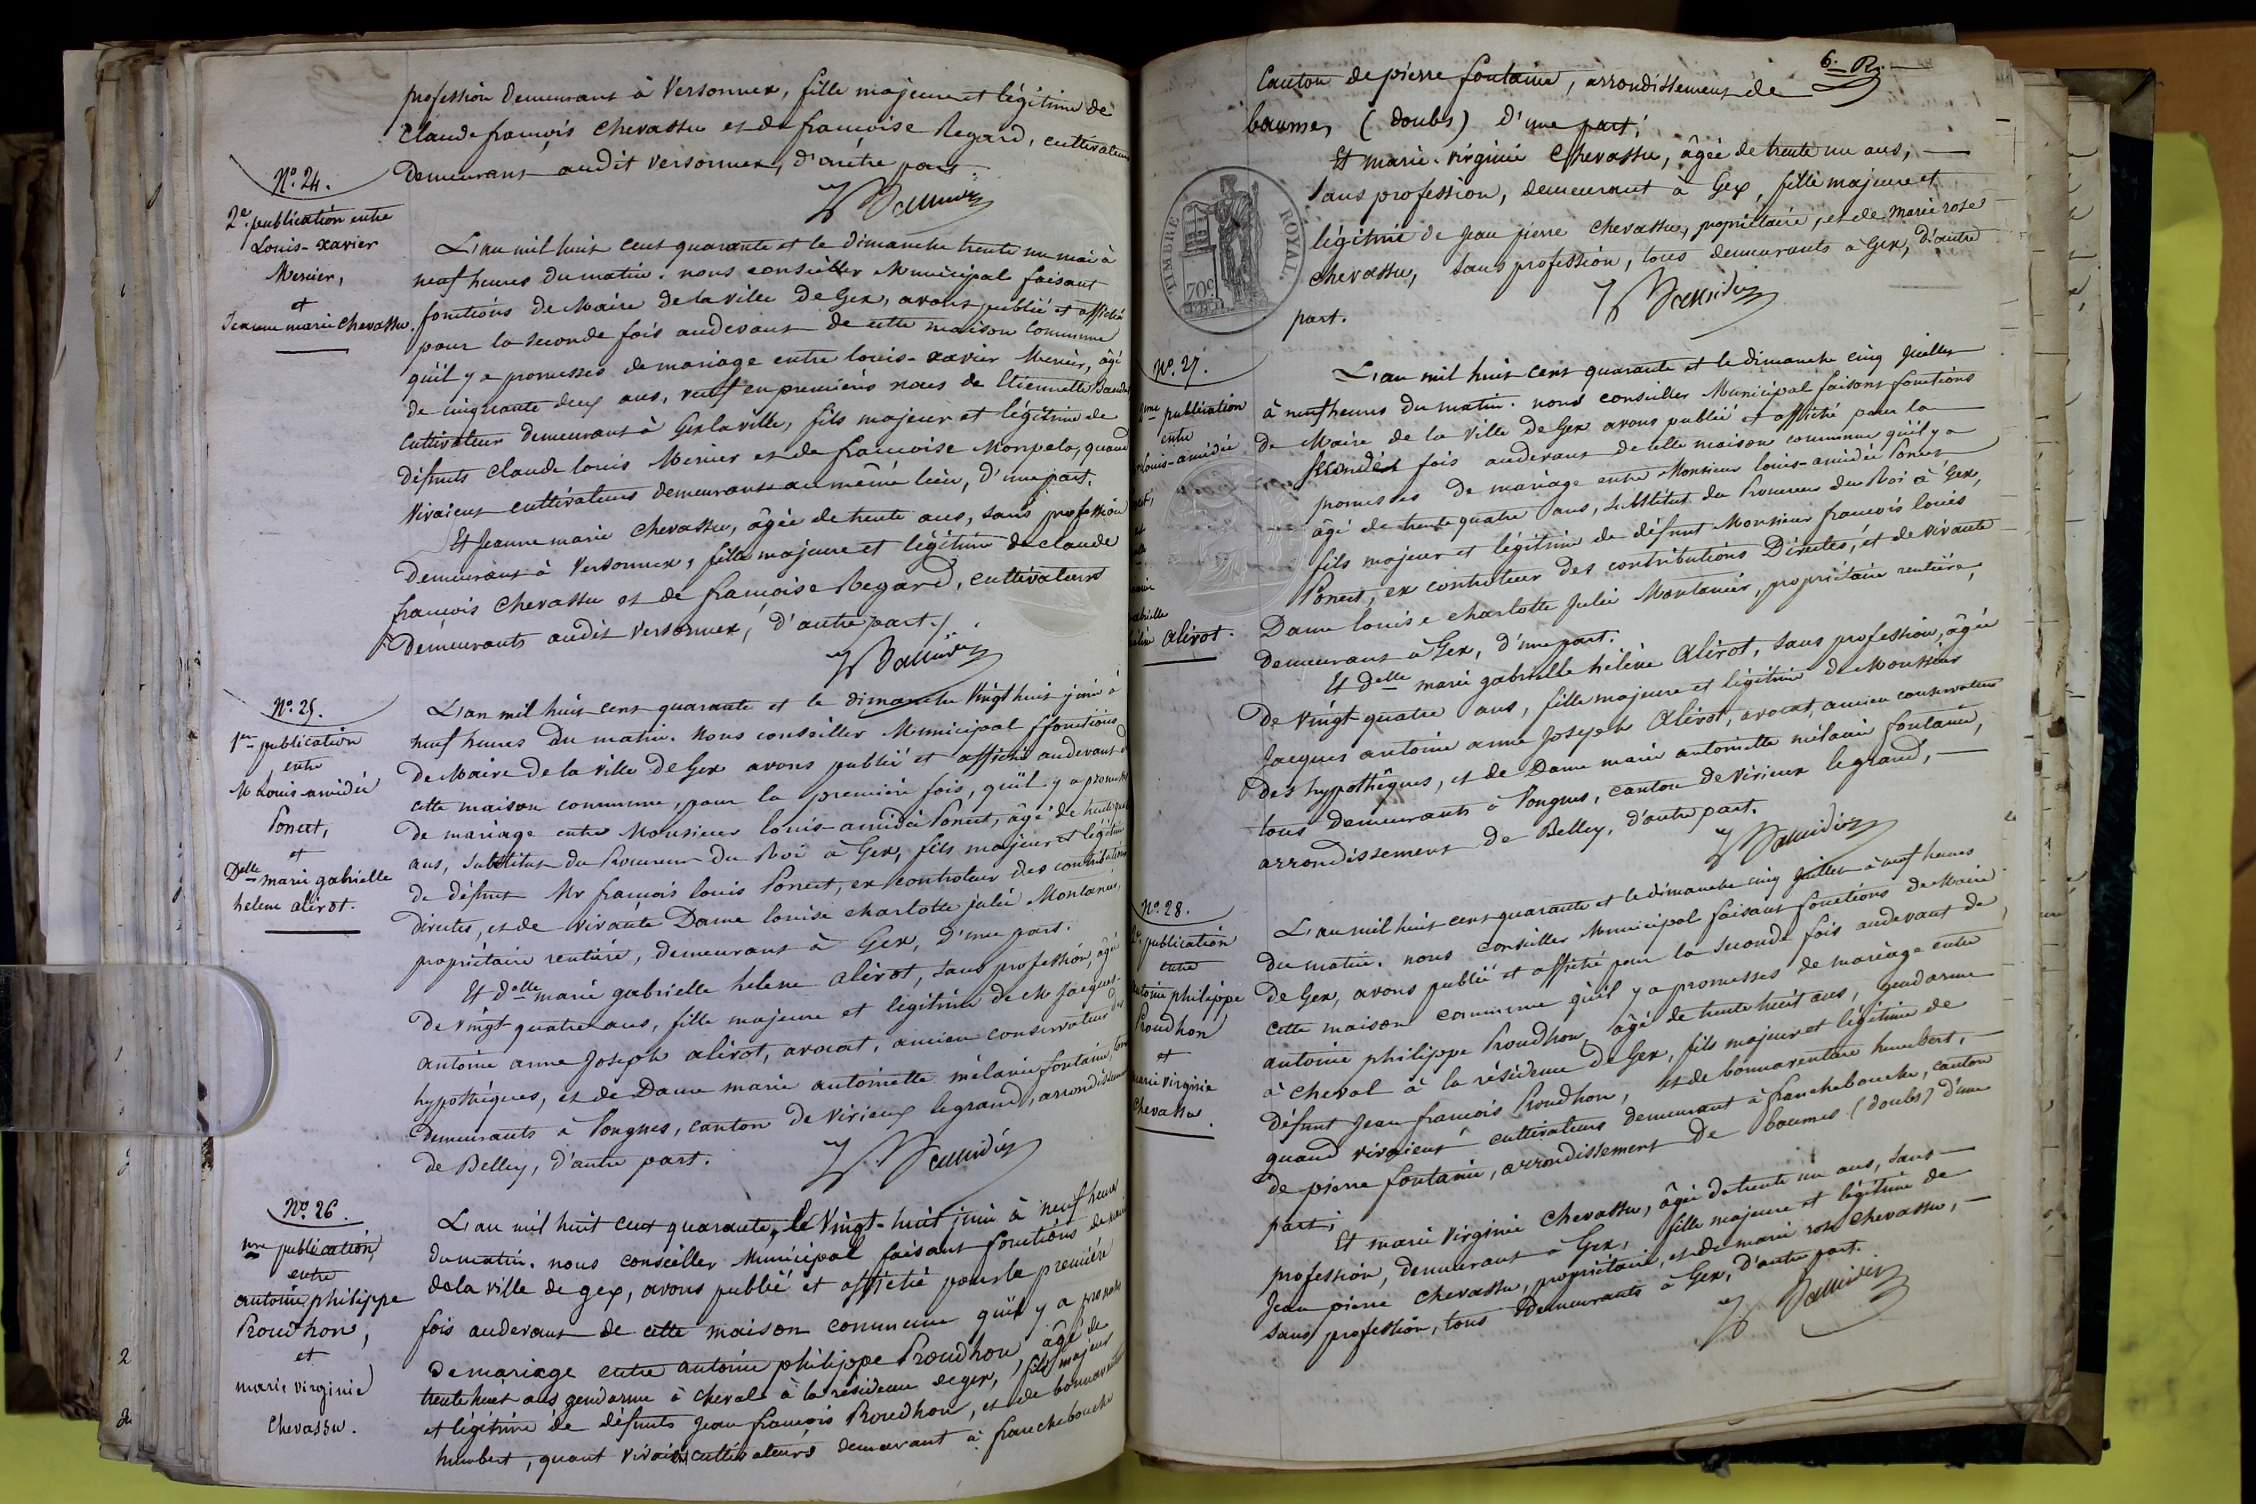 profession demeurant à Versonnex, fille majeure et légitime de
Claude françois Chevassu et de françoise Regard, cultivateurs
demeurant audit versonnex, d'autre part.
N.o 24.
2.e publication entre
Louis-xavier
Mercier,
et
Jeanne marie chevassu.
L'an mil huit cent quarante et le dimanche trente un mai à
neuf heures du matin. nous conseiller Municipal faisant
fonctions de Maire de la ville De Gex, avons publié et affiché
pour la seconde fois audevant de cette maison commune
qu'il y a promesses de mariage entre louis-xavier Mercier, âgé
de cinquante deux ans, veuf en premières noces de Etiennette
cultivateur demeurant à Gex la ville, fils majeur et légitime de
défunts Claude louis Mercier et de françoise Monpela, quand
vivaient cultivateurs demeurants au même lieu, d'une part.
Et Jeanne marie Chevassu, âgée de trente ans, sans profession
demeurant à Versonnex, fille majeure et légitime de claude
françois Chevassu et de françoise Regard, cultivateurs
demeurants audit versonnex, d'autre part.
N.o 25.
1.ere publication
entre
M Louis-amédée
Poncet,
et
Delle marie gabrielle
helene alirot.
L'an mil huit cent quarante et le dimanche vingt huit juin à
neuf heures Du matin. Nous conseiller Municipal ffonctions
de Maire de la ville de Gex avons publié et affiché audevant d
cette maison commune, pour la première fois, qu'il y a promesses
de mariage entre Monsieur louis-amédée Poncet, âgé de trente quatre
ans, substitut du Procureur Du Roi à Gex, fils majeur et légitime
de défunt Mr françois louis Poncet, ex controleur des contributions
directes, et de vivante Dame louise charlotte julie Montanier,
propriétaire rentière, demeurant à Gex, d'une part.
Et delle marie gabrielle helene alirot, sans profession, âgée
de vingt quatre ans, fille majeure et légitime de Mr Jacques-
antoine anne Joseph alirot, avocat, ancien conservateur des
hypothèques, et de Dame marie antoinette mélanie fontaine, tous
demeurants à Pongnes, canton de virieux legrand, arrondissement
de Belley, d'autre part.
N.o 26.
1ere publication
entre
antoine philippe
Proudhon,
et
marie virginie
Chevassu.
L'an mil huit cent quarante, le vingt-huit juin à neuf heures
du matin. nous conseiller Municipal faisant fonctions de maire
de la ville de gex, avons publié et affiché pour la première
fois audevant de cette maison commune qu'il y a promesses
de mariage entre antoine philippe Proudhon âgé de
trente huit ans gendarme à cheval à la résidence de gex, fils majeur
et légitime de défunts Jean françois Proudhon, et de bonnaventure
humbert, quant vivaient cultivateurs demeurant à franchebouche
6. R.
Canton de pierre fontaine, arrondissement de
baumes (doubs) d'une part;
Et marie-virginie Chevassu, âgée de trente un ans,
sans profession, demeurant à Gex, fille majeure et
légitime de Jean pierre chevassu, propriétaire, et de marie rose
chevassu, sans profession, tous demeurants à Gex, d'autre
part.
TIMBRE ROYAL.
70c
N.o 27.
2eme publication
entre
louis-amédée
et
gabrielle
hélène alirot.
L'an mil huit cent quarante et le dimanche cinq juillet
à neuf heures du matin. nous conseiller Municipal faisant fonctions
de Maire de la ville de Gex avons publié et affiché pour la
seconde fois audevant de cette maison commune qu'il y a
promesses de mariage entre Monsieur louis-amédée Poncet
âgé de trente quatre ans, substitut du Procureur du Roi à Gex,
fils majeur et légitime de défunt Monsieur françois louis
Poncet, ex controleur des contributions Directes, et de vivante
Dame louise charlotte Julie Montanier, propriétaire rentière,
demeurant à Gex, d'une part.
Et delle marie gabrielle hélène alirot, sans profession, âgée
de vingt quatre ans, fille majeure et légitime de Monsieur
Jacques antoine anne Joseph alirot, avocat, ancien conservateur
des hypothèques, et de Dame marie antoinette mélanie fontaine,
tous demeurants à Pongnes, canton de virieux legrand,
arrondissement de Belley, d'autre part.
N.o 28.
2e publication
entre
antoine philippe
Proudhon
et
marie virginie
Chevassu.
L'an mil huit cent quarante et le dimanche cinq juillet à neuf heures
du matin. nous conseiller Municipal faisant fonctions de Maire
de Gex, avons publié et affiché pour la seconde fois audevant de
cette maison commune qu'il y a promesses de mariage entre
antoine philippe Proudhon âgé de trente huit ans, gendarme
à cheval à la résidence de Gex, fils majeur et légitime de
défunt Jean françois Proudhon, et de bonnaventure humbert,
quand vivaient cultivateurs demeurant à franchebouche, canton
de pierre fontaine, arrondissement de baumes (doubs) d'une
part;
Et marie virginie Chevassu, âgée de trente un ans, sans
profession, demeurant à Gex, fille majeure et légitime de
Jean pierre chevassu, propriétaire, et de marie rose chevassu,
sans profession, tous demeurants à Gex, d'autre part.